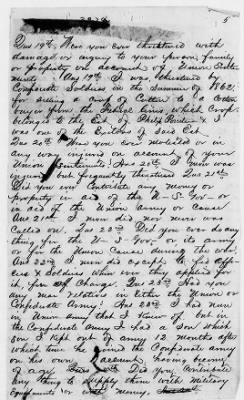 5
Ques 19th. Were you ever threatened with
damage or injury to your person, family
or property on account of your Union Senti-
ments? Ans 19th I was threatened by
Confederate Soldiers in the Summer of 1862,
for selling a crop of Cotton to a Cotton
buyer from the Federal lines which Crop
belonged to the Est. of Philip & I
was one of the Executors of Said Est.
Ques 20th Was you ever molested or in
any way injured on account of your
Union Sentiments? Ans 20th I never was
injured but frequently threatened Ques 21st
Did you ever Contribute any money or
property in aid of the U-S Gov- or
in aid of the Union Army or Cause
Ans 21st I never did nor never was
called on. Ques 22nd Did you ever do any
thing for the U-S Gov- or its army
or for the Union Cause during the War.
Ans 22nd I never did except to feed Offi-
cers & Soldiers when ever they applied for
it, free of Charge. Ques 23rd Had you
any near relatives in Either the Union or
Confederate Army? Ans 23rd I had none
in Union army that I knew of but in
the Confederate Army I had a Son which
son I kept out of army 12 months after
which time he joined the Confederate army
on his own account, having become
of age Ques 24th Did you Contribute
any thing to supply them with Military
Equipments or money.